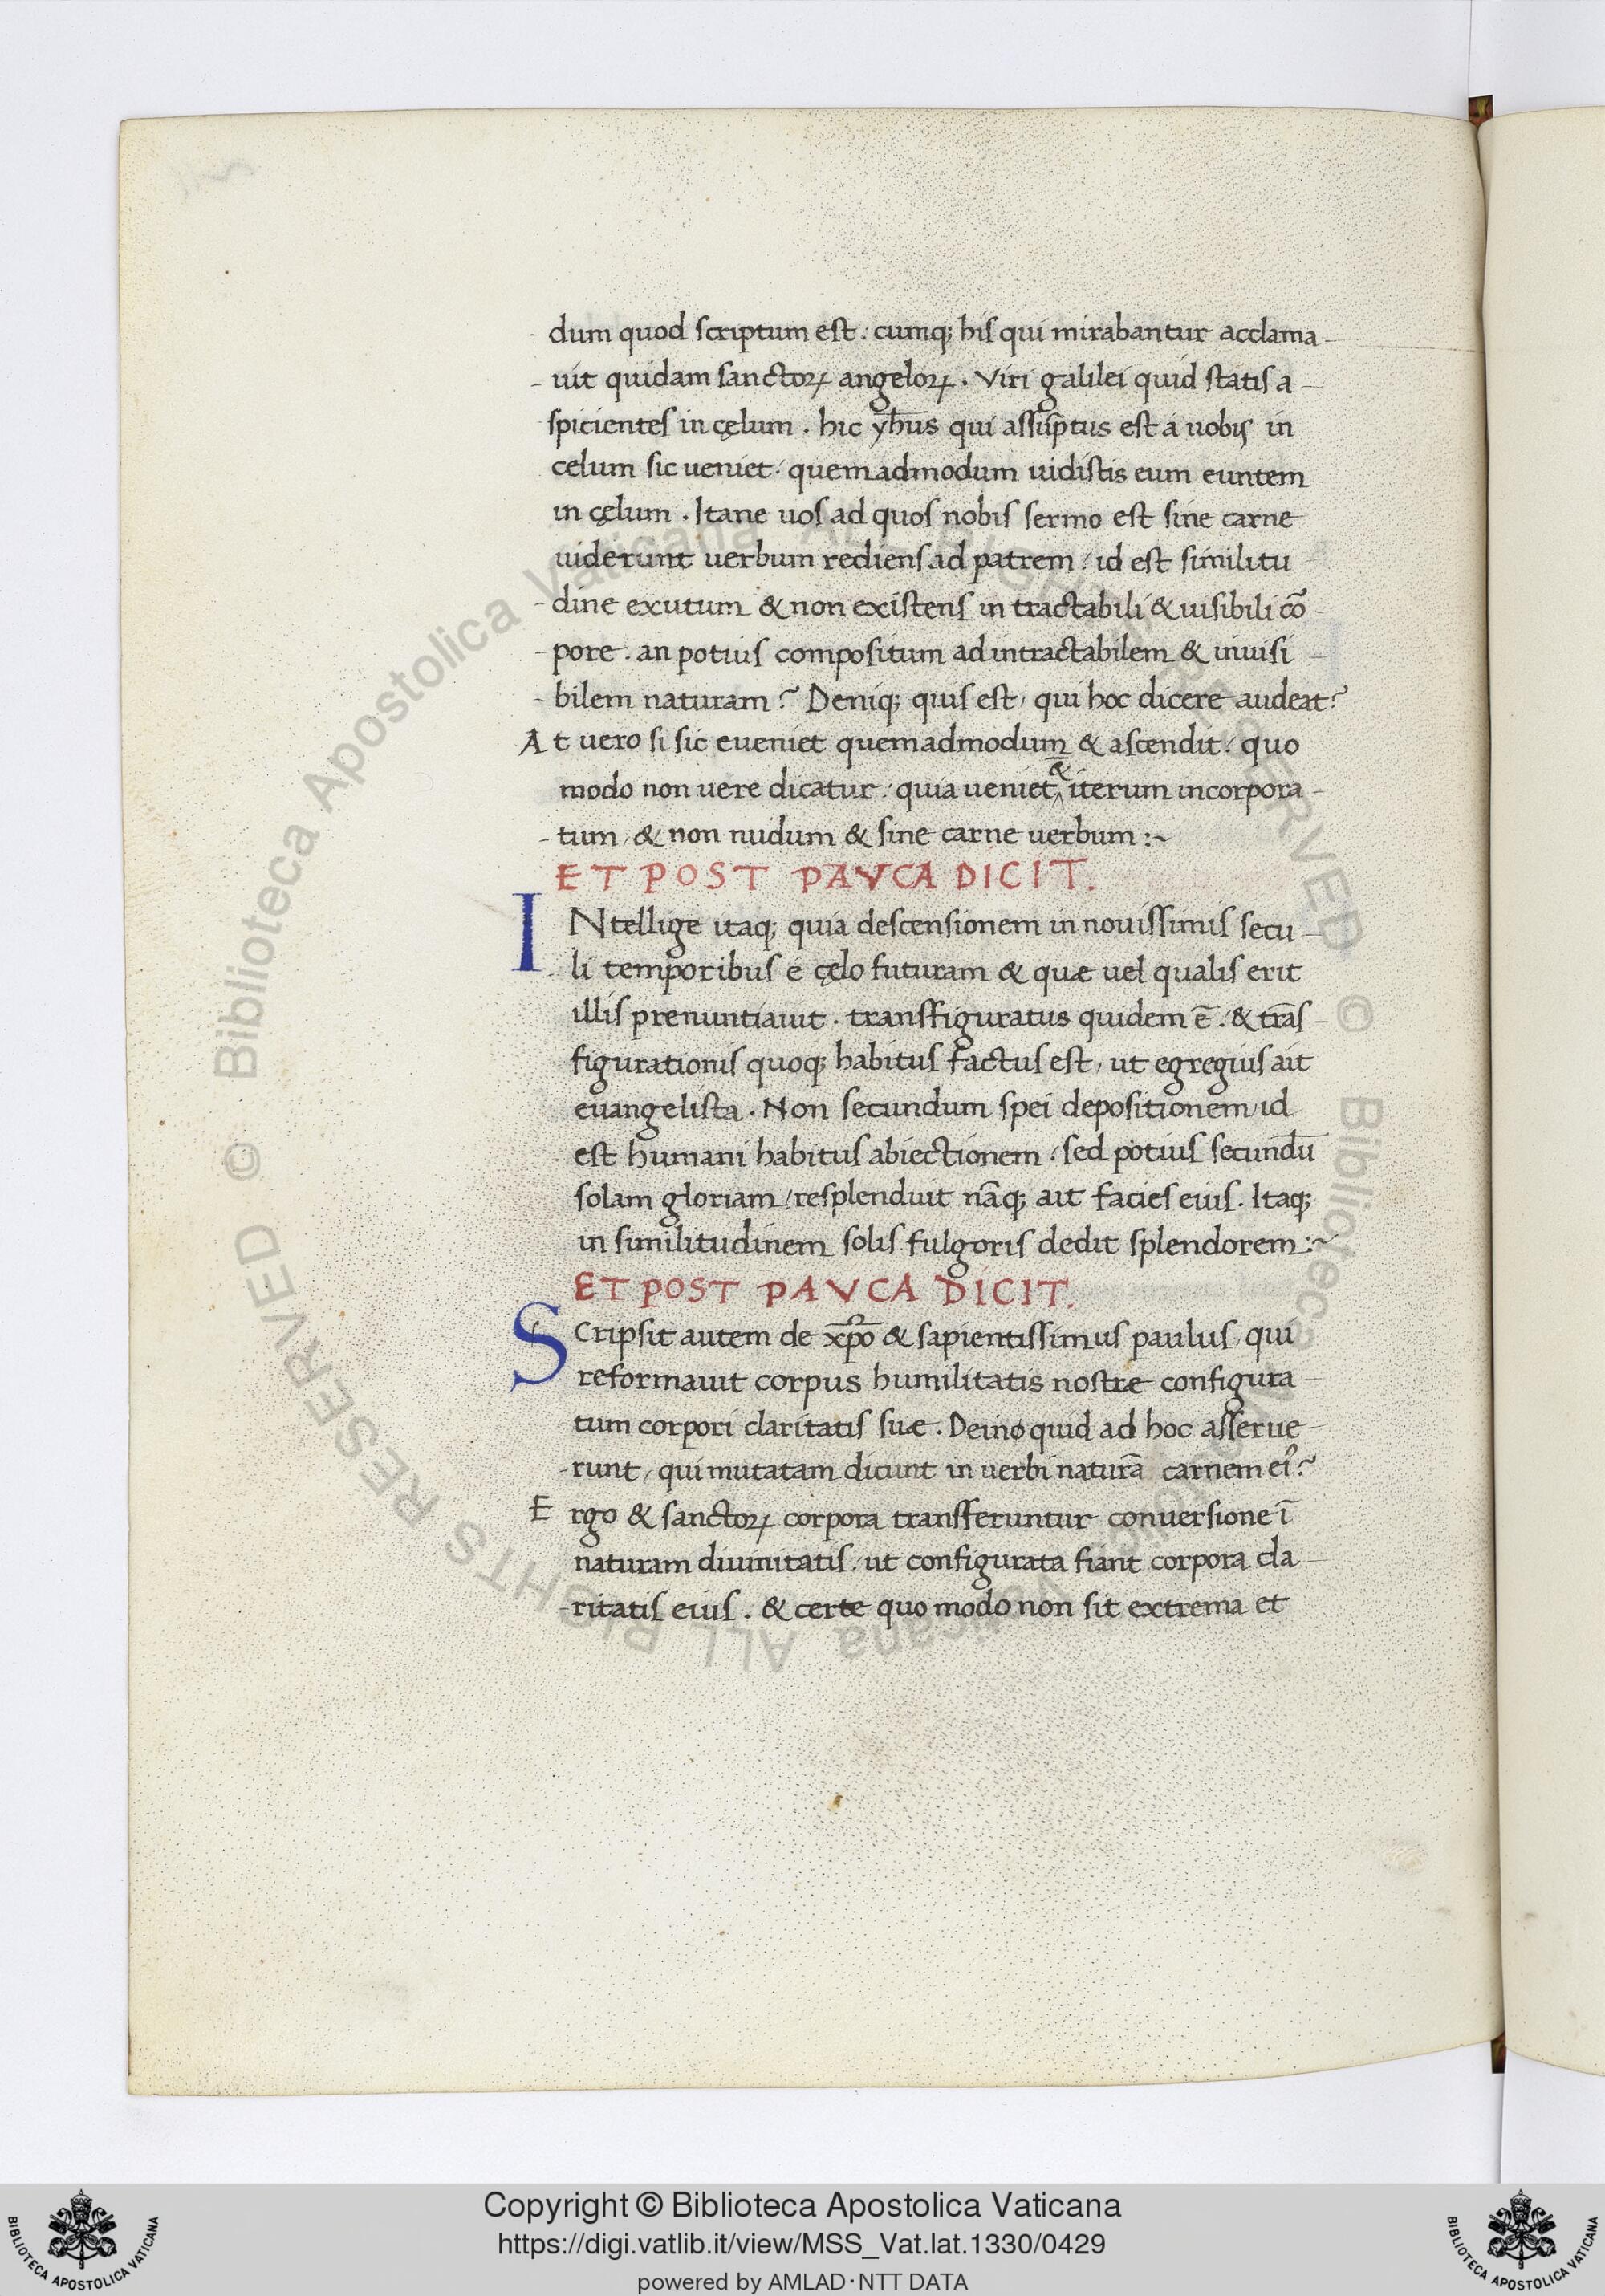 dum quod scriptum est: cumq; his qui mirabantur acclama
uit quidam sanctoꝝ angeloꝝ. Viri galilei quid statis a
spicientes in cęlum. hic yħus qui assūptus est a uobis in
celum sic ueniet: quemadmodum uidistis eum euntem
in cęlum. Itane uos ad quos nobis sermo est sine carne
uiderunt uerbum rediens ad patrem: id est similitu
dine exutum & non existens in tractabili & uisibili cō
pore. an potius compositum ad intractabilem & inuisi
bilem naturam? Deniq; quis est, qui hoc dicere audeat?
At uero si sic eueniet quemadmodum & ascendit: quo
modo non uere dicatur: quia ueniet & iterum incorpora
tum, & non nudum & sine carne uerbum:~
ET POST PAVCA DICIT.
INtellige itaq; quia descensionem in nouissimis secu
li temporibus e cęlo futuram & quæ uel qualis erit
illis prenuntiauit. transfiguratus quidem ē: & trās
figurationis quoq; habitus factus est, ut egregius ait
euangelista. Non secundum spei depositionem, id
est humani habitus abiectionem: sed potius secundū
solam gloriam, resplenduit nāq; ait facies eius. Itaq;
in similitudinem solis fulgoris dedit splendorem:~
ET POST PAVCA DICIT.
Scripsit autem de xp̄o & sapientissimus paulus, qui
reformauit corpus humilitatis nostre configura
tum corpori claritatis suæ. Deino quid ad hoc asserue
runt, qui mutatam dicunt in uerbi naturā carnem eiꝰ?
Ergo & sanctoꝝ corpora transferuntur conuersione ī
naturam diuinitatis, ut configurata fiant corpora cla
ritatis eius. & certe quo modo non sit extrema et
© Biblioteca Apostolica Vaticana ALL RIGHTS RESERVED
© Biblioteca Apostolica Vaticana ALL RIGHTS RESERVED
Copyright © Biblioteca Apostolica Vaticana
https://digi.vatlib.it/view/MSS_Vat.lat.1330/0429
powered by AMLAD·NTT DATA
BIBLIOTECA APOSTOLICA VATICANA
BIBLIOTECA APOSTOLICA VATICANA